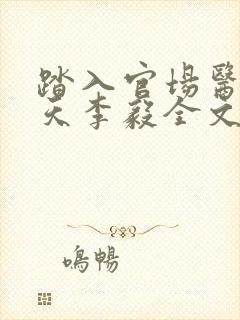 踏入官場醫
天李毅全文
鳴暢